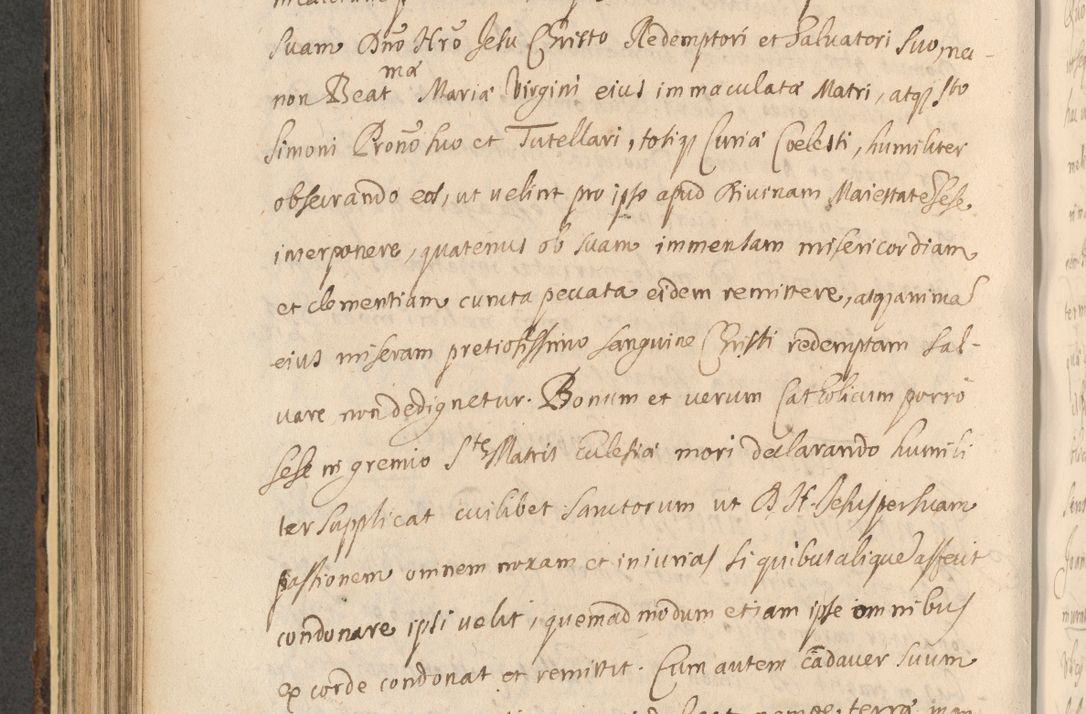 suam Dno Nro Jesu Christo Redemptori et Salvatori suo, nec
non Beat mae Mariae Virgini eius immaculatae Matri, atq Sto
Simoni Prono suo et Tutellari, totiq Curiae Coelesti, humiliter
obsecrando eos, ut velint pro ipso apud Divinam Maiestate sese
interponere, quatenus ob suam immensam misericordiam
et clementiam cuncta peccata eidem remittere, atq animam
eius miseram pretiosissimo sanguine Christi redemptam sal-
vare non dedignetur. Bonum et verum Catholicum porro
sese in gremio Ste Matris Ecclesiae mori declarando humili
ter supplicat cuilibet Sanctorum ut D. N. Jesus per suam
passionem omnem noxam et iniurias si quibus alique affecit
condonare ipsi velit, quemadmodum etiam ipse omnibus
ex corde condonat et remittit. Cum autem cadaver suum